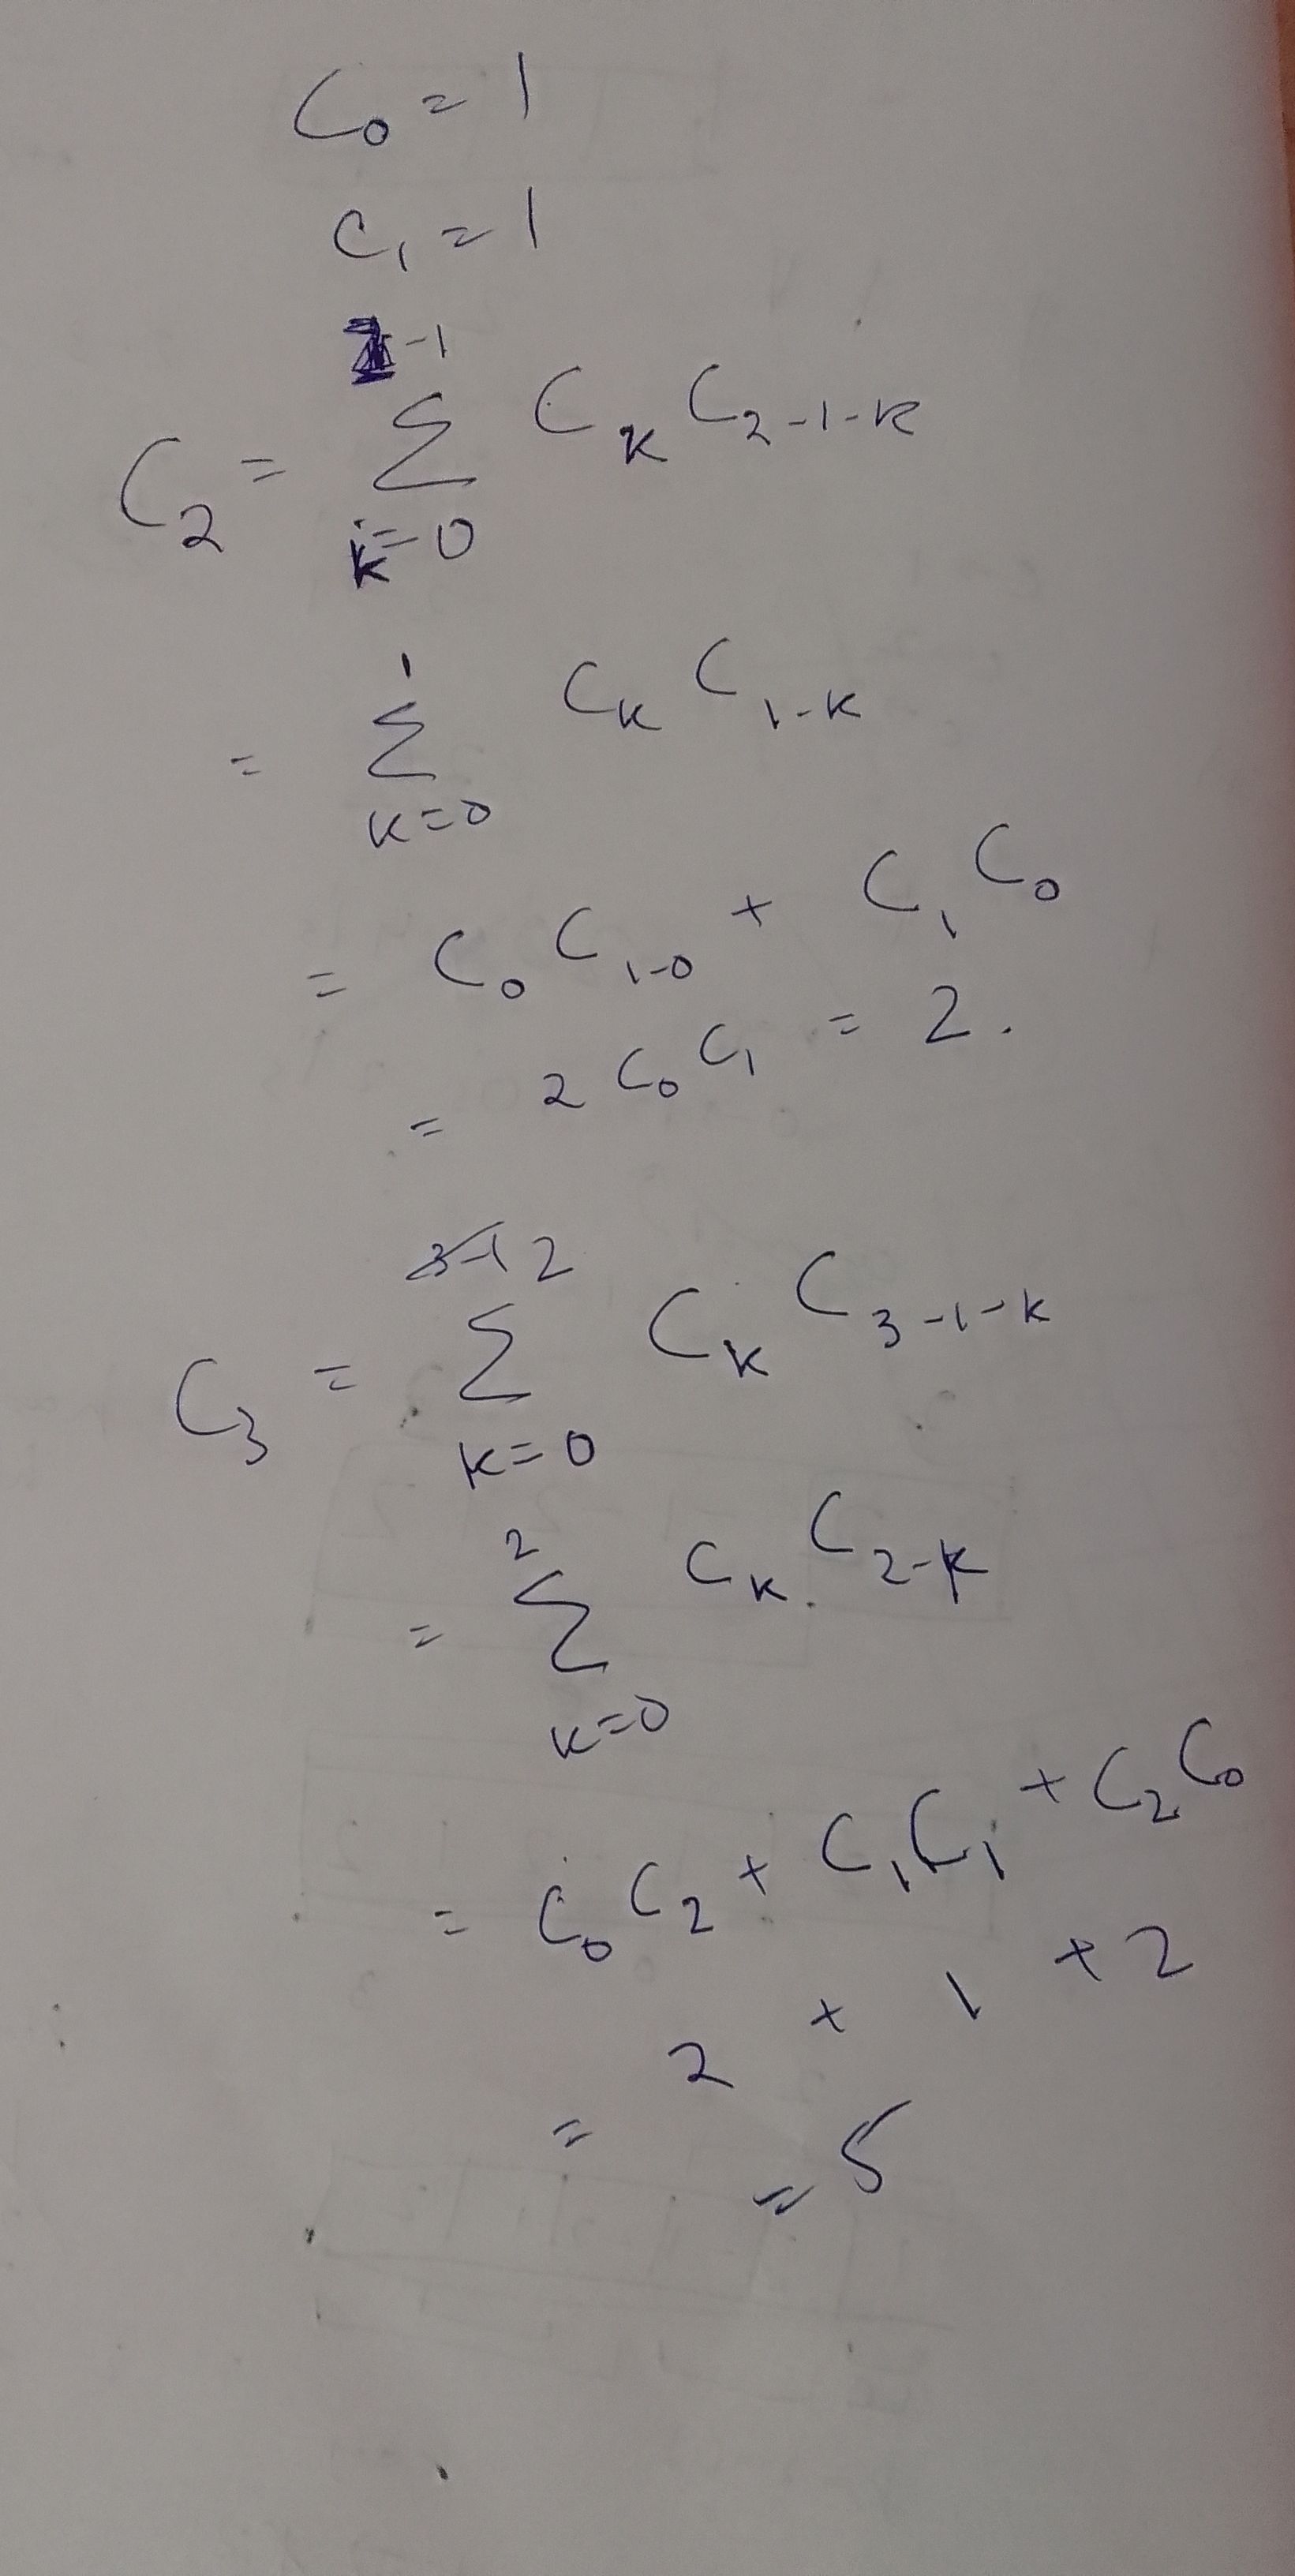 C₀ = 1
C₁ = 1
C₂ = ∑_{k=0}^{2-1} C_k C_{2-1-k}
= ∑_{k=0}^{1} C_k C_{1-k}
= C₀ C_{1-0} + C₁ C₀
= 2 C₀ C₁ = 2.
C₃ = ∑_{k=0}^{2} C_k C_{3-1-k}
= ∑_{k=0}^{2} C_k C_{2-k}
= C₀ C₂ + C₁ C₁ + C₂ C₀
= 2 + 1 + 2
= 5